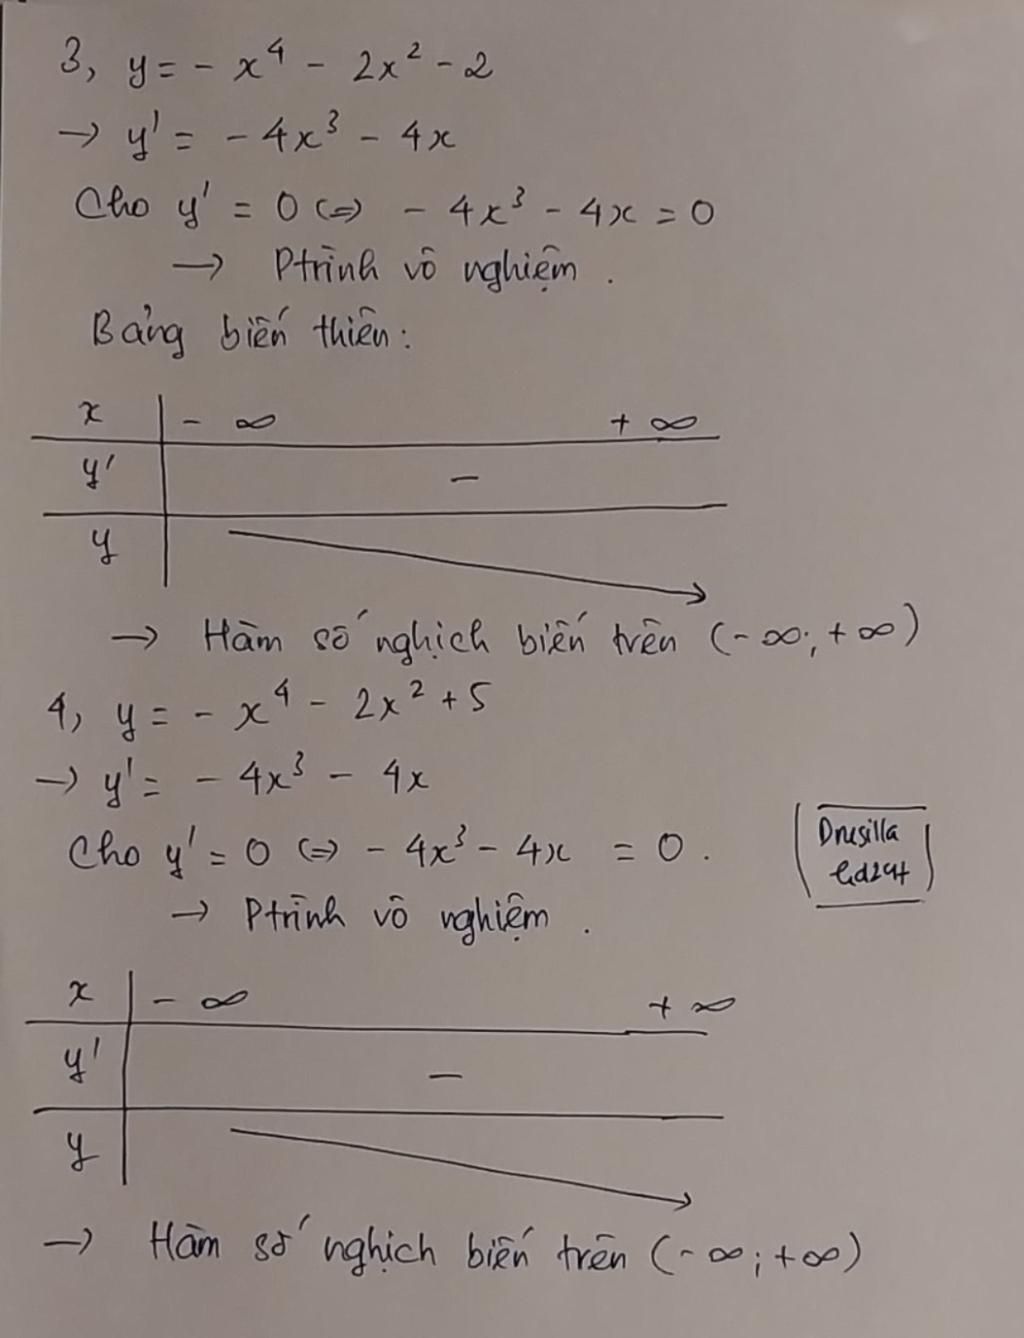 3, y = - x⁴ - 2x² - 2
→ y' = - 4x³ - 4x
Cho y' = 0 <=> - 4x³ - 4x = 0
→ Ptrình vô nghiệm .
Bảng biến thiên :
x - ∞ + ∞
y' -
y
→ Hàm số nghịch biến trên (- ∞; + ∞)
4, y = - x⁴ - 2x² + 5
→ y' = - 4x³ - 4x
Cho y' = 0 <=> - 4x³ - 4x = 0 .
Drusilla
→ Ptrình vô nghiệm .
x - ∞ + ∞
y' -
y
→ Hàm số nghịch biến trên (- ∞ ; + ∞)